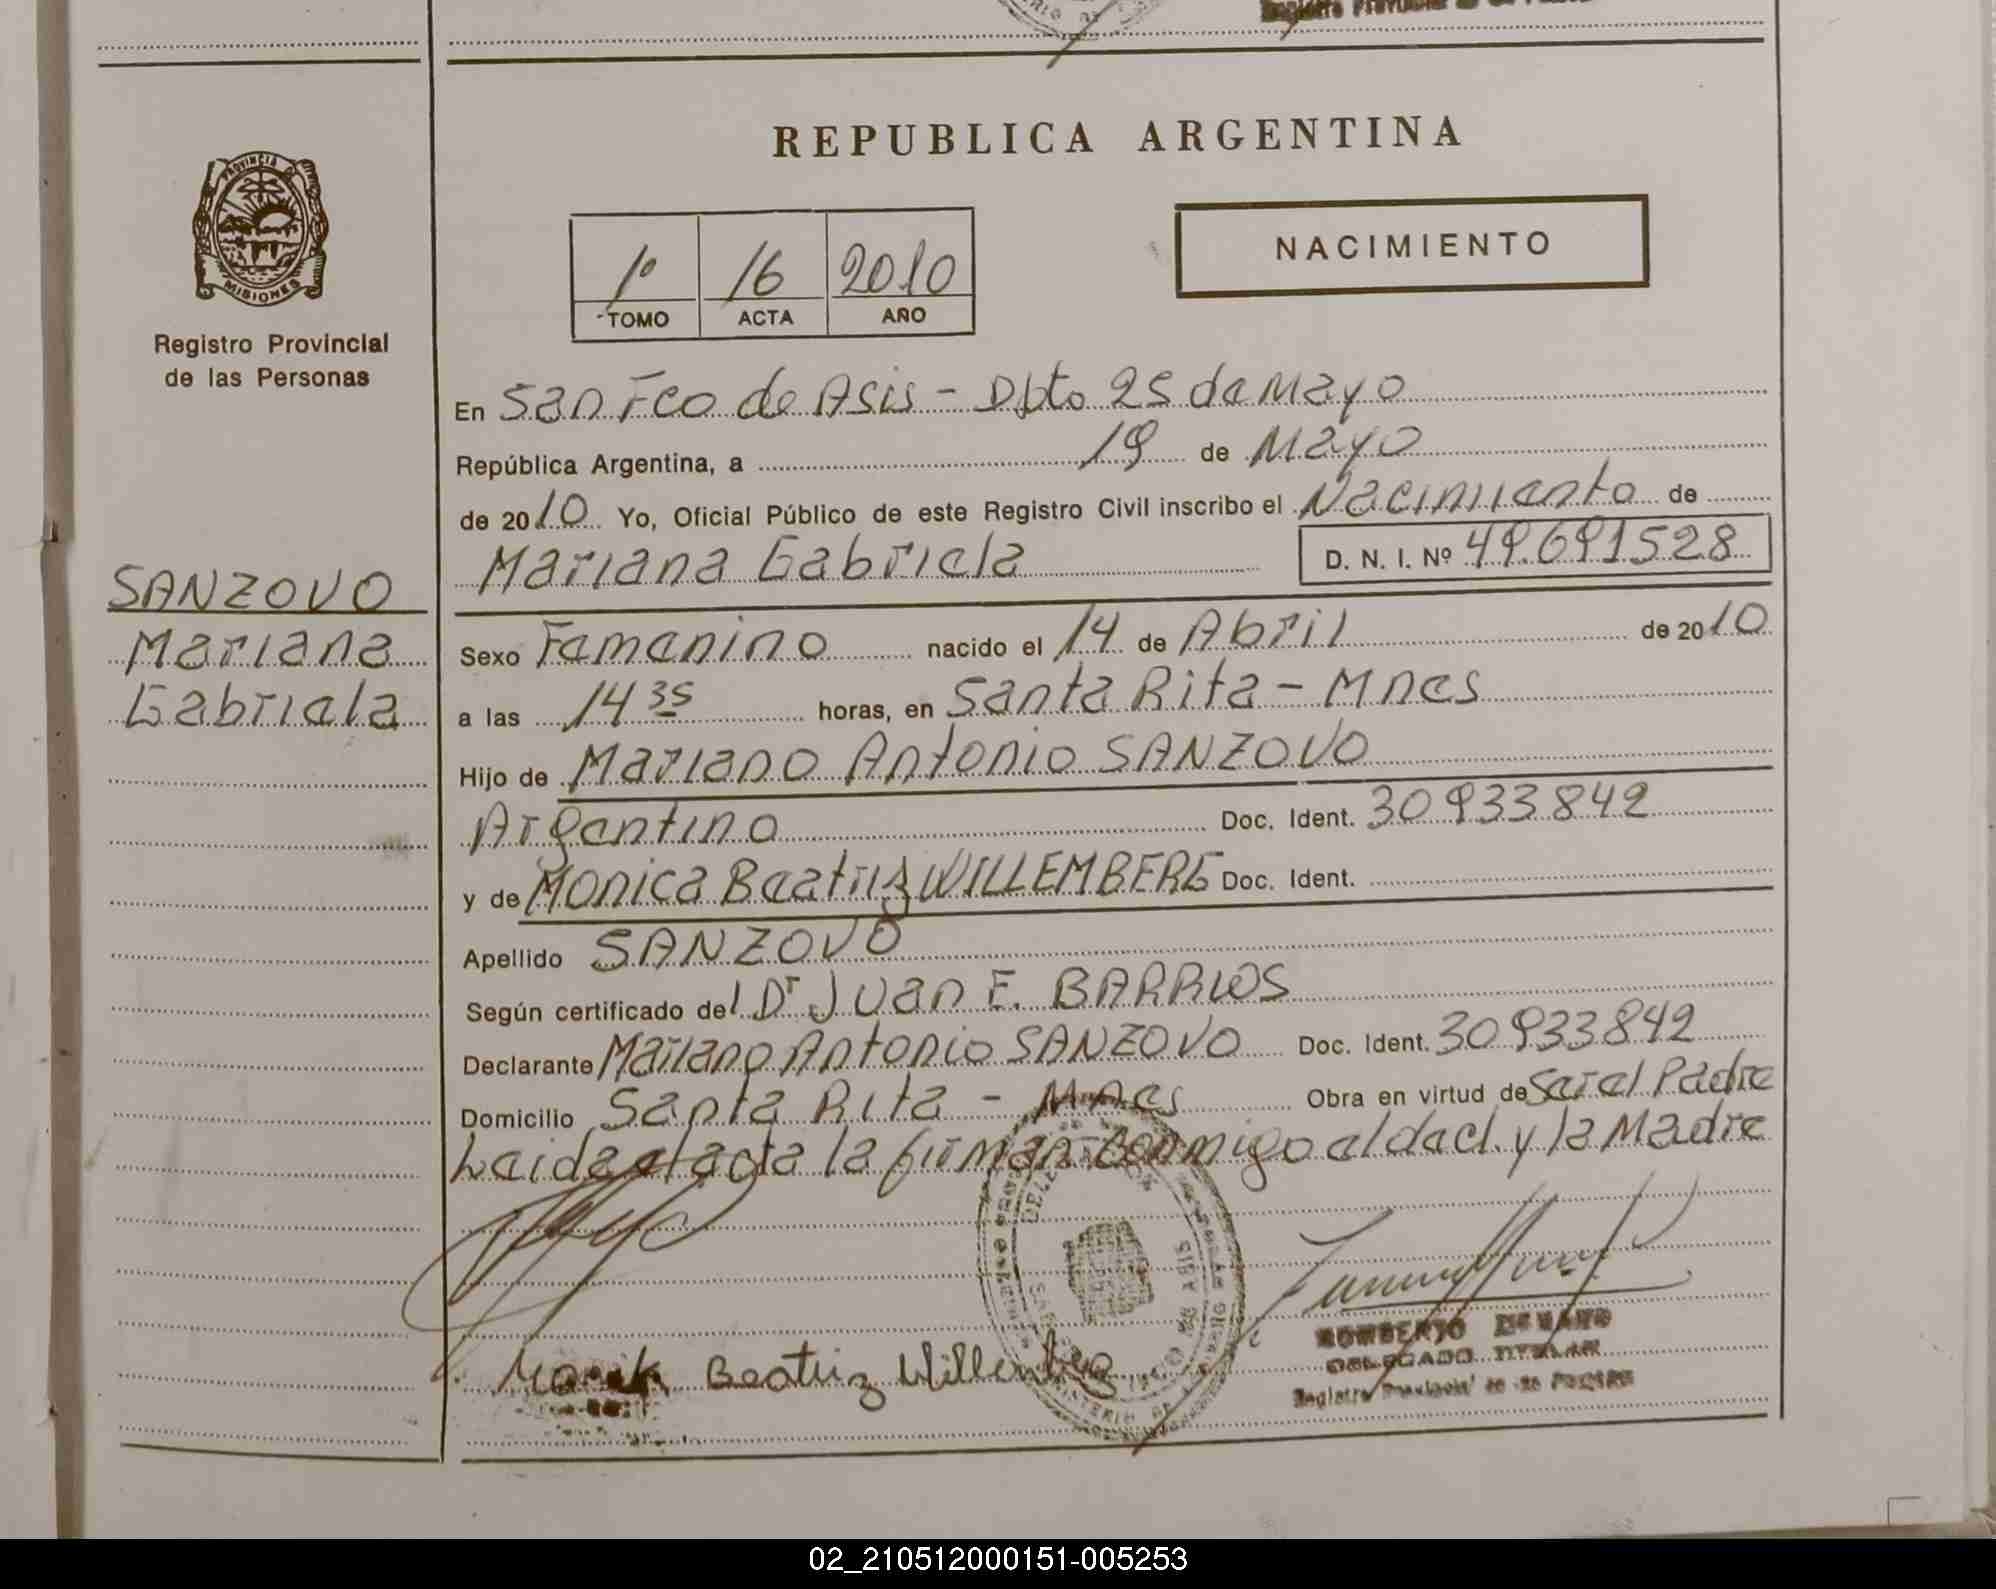 REPUBLICA ARGENTINA
PROVINCIA DE
MISIONES
Registro Provincial
de las Personas
1º 16 2010
TOMO ACTA AÑO
NACIMIENTO
En San Fco de Asis - Dpto 25 de Mayo
República Argentina, a 19 de Mayo
de 2010 Yo, Oficial Público de este Registro Civil inscribo el Nacimiento de
Mariana Gabriela D. N. I. Nº 49.691528
SANZOVO
Mariana
Gabriela
Sexo Femenino nacido el 14 de Abril de 2010
a las 14 35 horas, en Santa Rita - Mnes
Hijo de Mariano Antonio SANZOVO
Argentino Doc. Ident. 30933842
y de Monica Beatriz WILLEMBERG Doc. Ident.
Apellido SANZOVO
Según certificado del Dr Juan E. BARRIOS
Declarante Mariano Antonio SANZOVO Doc. Ident. 30933842
Domicilio Santa Rita - Mnes Obra en virtud de Ser el Padre
Leida el acta la firman conmigo el decl. y la Madre
Beatriz Willemberg
DELEGADO TITULAR
Registro Provincial de las Personas
02_210512000151-005253